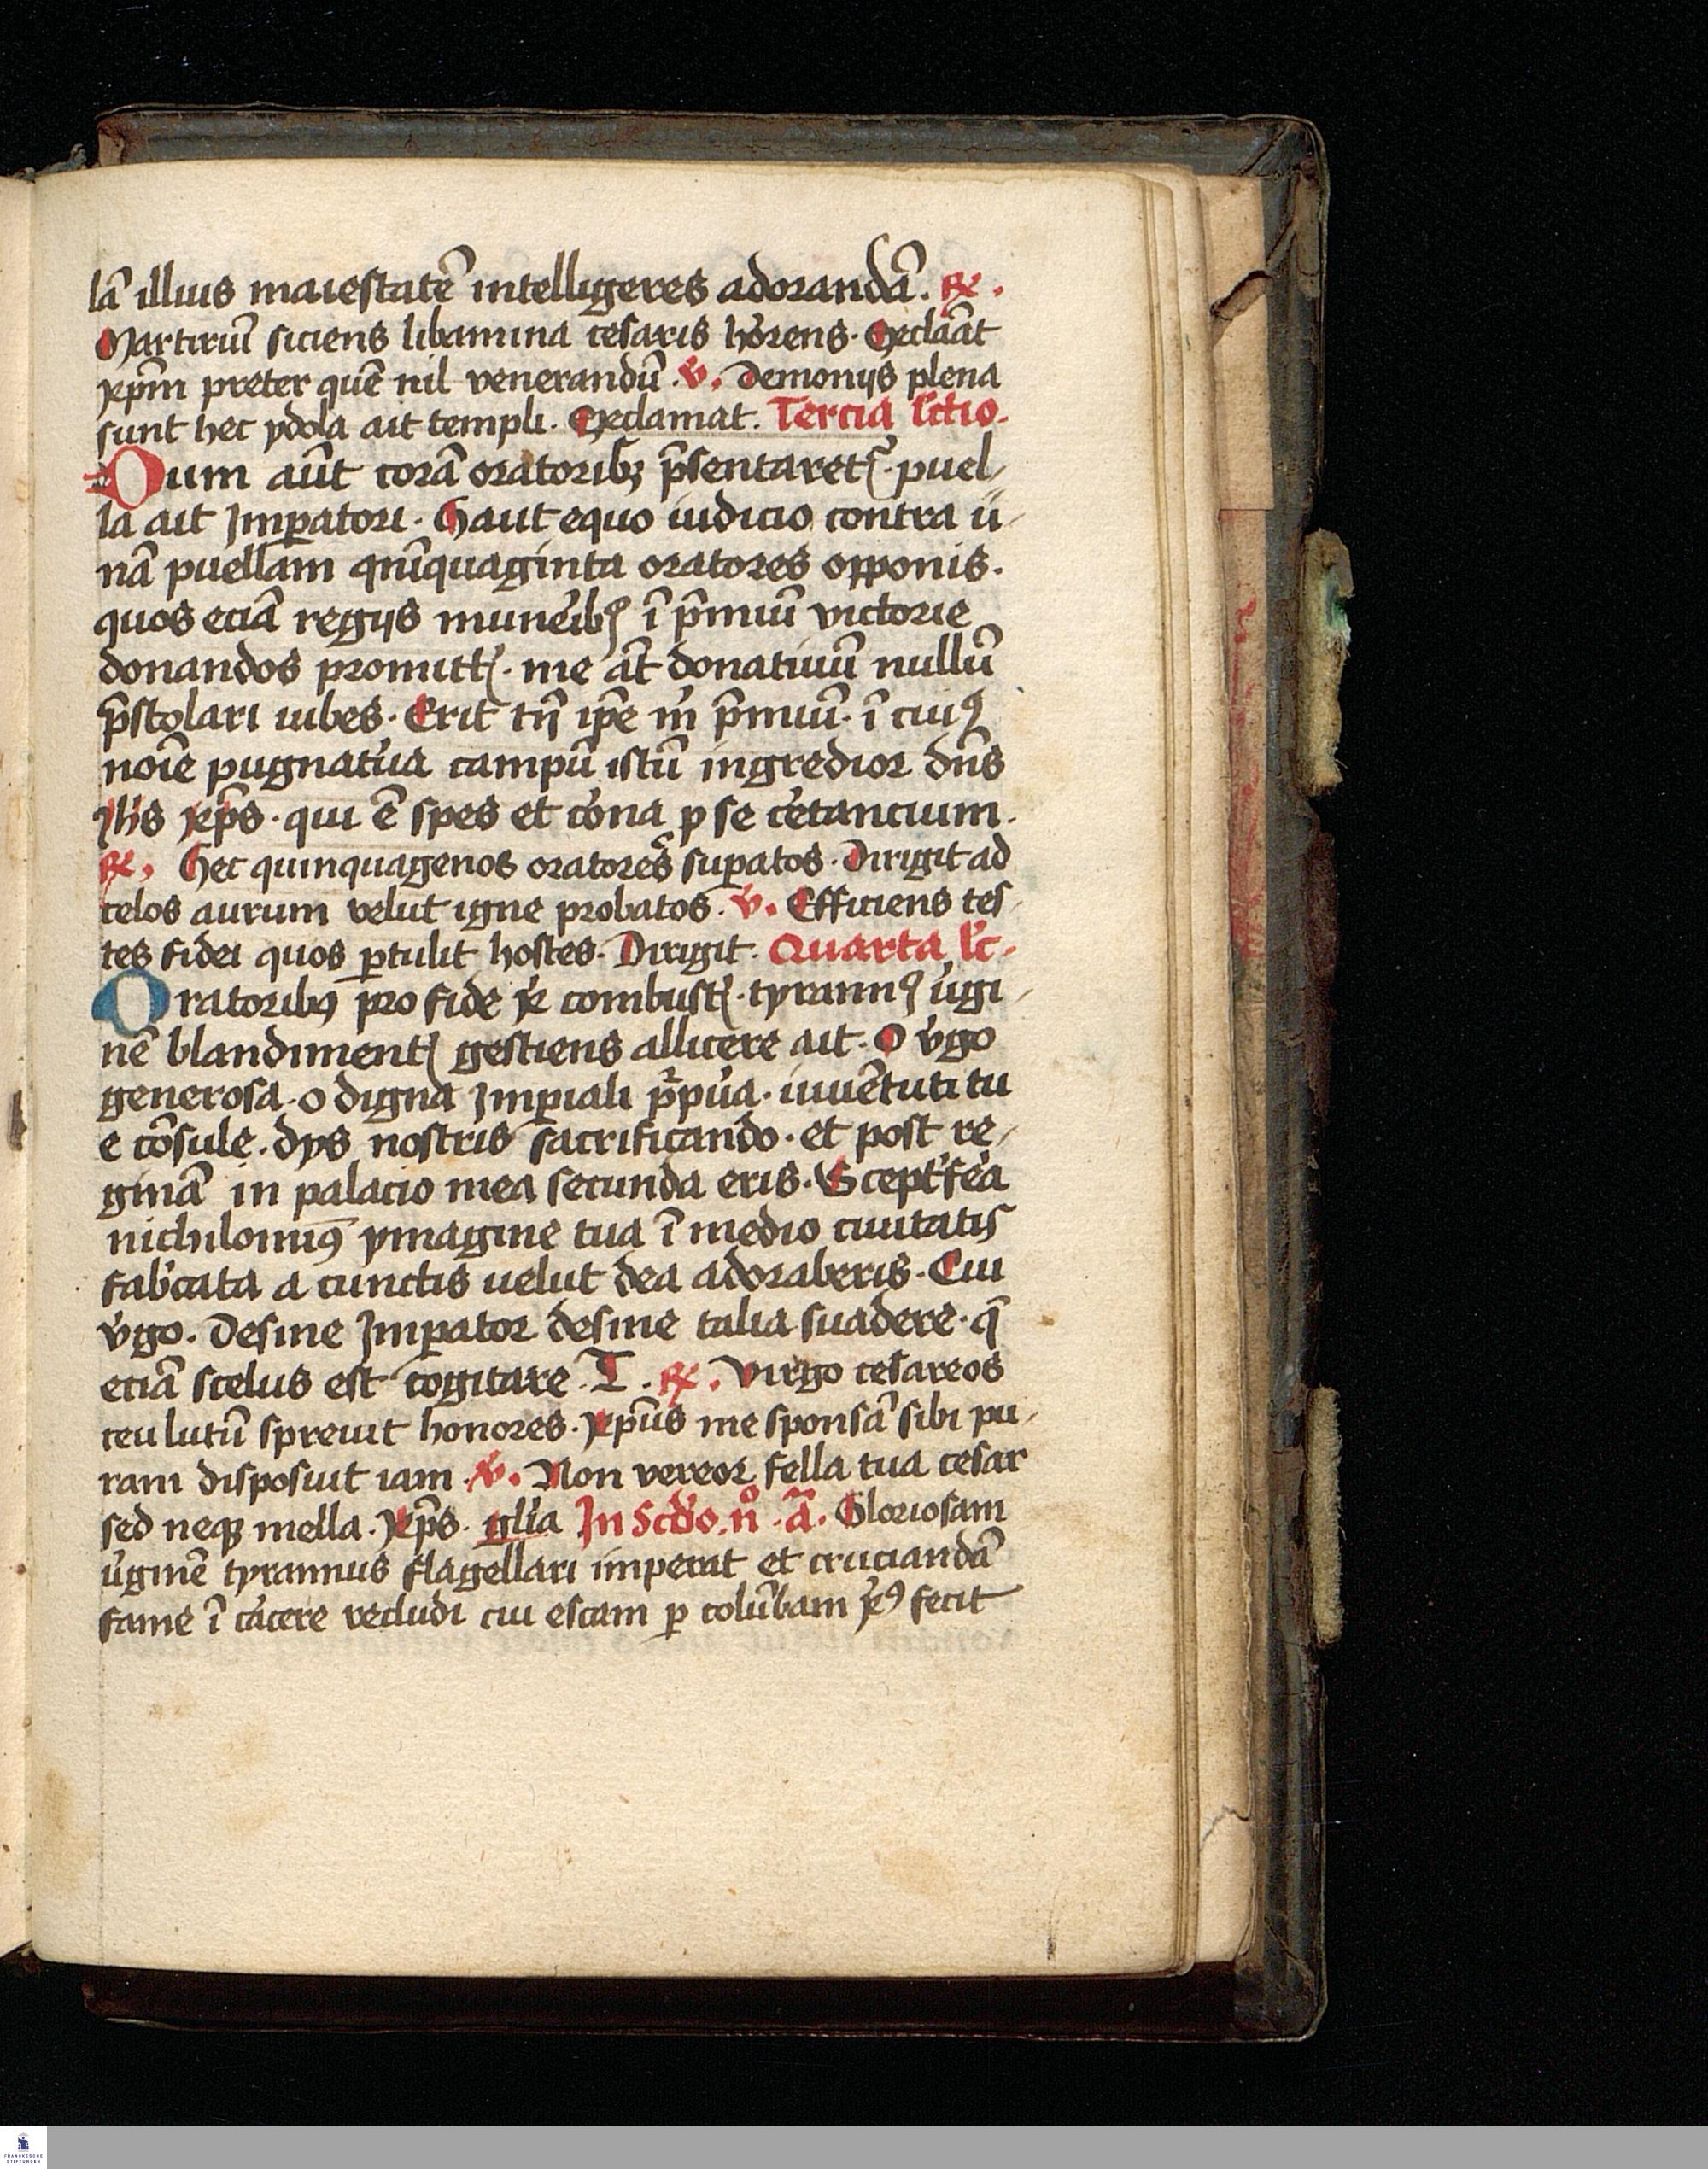 lā illius maiestatē intelligeres adorandā. ℟.
Martirūᷣ siciens libamina cesaris hōrens. Exclāat
xp̄m preter quē nil venerandū. ℣. Demonijs plena
sunt hec ydola ait templi. Exclamat. Tercia lc̄tio.
Dum aūt corā oratoribꝫ p̄sentaret᷑. puel⸗
la ait Imꝑatori. Haut equo iudicio contra ú⸗
nā puellam qnīquaginta oratores opponis.
quos eciā regijs muneribꝰ ī p̄miū victorie
donandos promittꝭ. me āt donatiuū nullū
p̄stolari iubes. Erit tn̄ ip̄e m̄ p̄miū. ī cuiꝰ
noīe pugnatᷣa campū istū ingredior dn̄s
Ihs xp̄s. qui ē spes et cōna p se c̾tancium.
℟. Hec quinquagenos oratores suꝑatos. Dirigit ad
celos aurum velut igne probatos. ℣. Efficiens tes⸗
tes fidei quos ꝑtulit hostes. Dirigit. Quarta lc̄.
Oratoribꝰ pro fide xp̄i combustꝭ. tyrannꝰ v̾gi⸗
nē blandimentꝭ gestiens allicere ait. O v̾go
generosa. o digna Imꝑiali purpura. iuuētuti tu
e cōsule. dys nostris sacrificando. et post re⸗
ginā in palacio mea secunda eris. Scept̾fe̾a
nichilominꝰ ymagine tua ī medio ciuitatis
fab̾cata a cunctis uelut dea adoraberis. Cui
v̾go. Desine Imꝑator desine talia suadere. q̄
eciā scelus est cogitare. T. ℟. Virgo cesareos
ceu lutū spreuit honores. Xp̄us me sponsā sibi pu⸗
ram disposuit iam. ℣. Non vereor fella tua cesar
sed neqꝫ mella. Xp̄s. gl̄ia In Scd̄o. nº. ā. Gloriosam
v̾ginē tyrannus flagellari imperat et cruciandā
fame ī ca̾cere recludi cui escam ꝑ colūbam xp̄ꝰ fecit
FRANCKESCHE
STIFTUNGEN